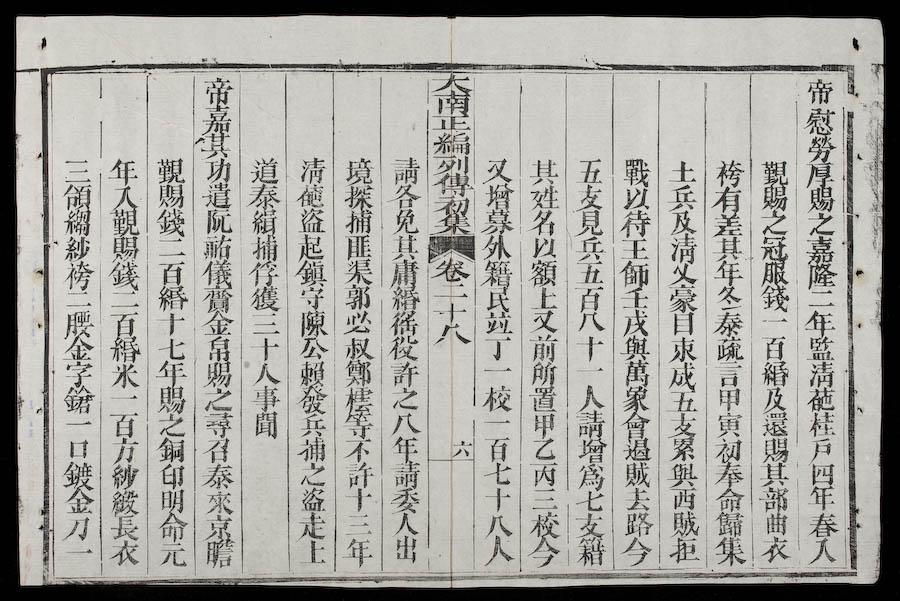 帝慰勞厚賜之嘉隆二年監淸葩桂戸四年春入
覲賜之冠服錢一百緡及還賜其部曲衣
袴有差其年冬泰疏言甲寅初奉命歸集
土兵及淸乂豪目束成五支累與西賊拒
戰以待王師壬戌與萬象會遏賊去路今
五支見兵五百八十一人請增爲七支籍
其姓名以額上又前所置甲乙丙三校今
又增募外籍民竝丁一校一百七十八人
大南正編列傳初集 卷二十八 六
請各免其庸緡徭役許之八年請委人出
境探捕匪渠郭必叔鄭 等不許十三年
淸葩盜起鎮守陳公賴發兵捕之盜走上
道泰緝捕俘獲三十人事聞
帝嘉其功遣阮祐儀齎金帛賜之尋召泰來京瞻
覲賜錢二百緡十七年賜之銅印明命元
年入覲賜錢二百緡米一百方紗緞長衣
三領縐紗袴二腰金字 一口鍍金刀一